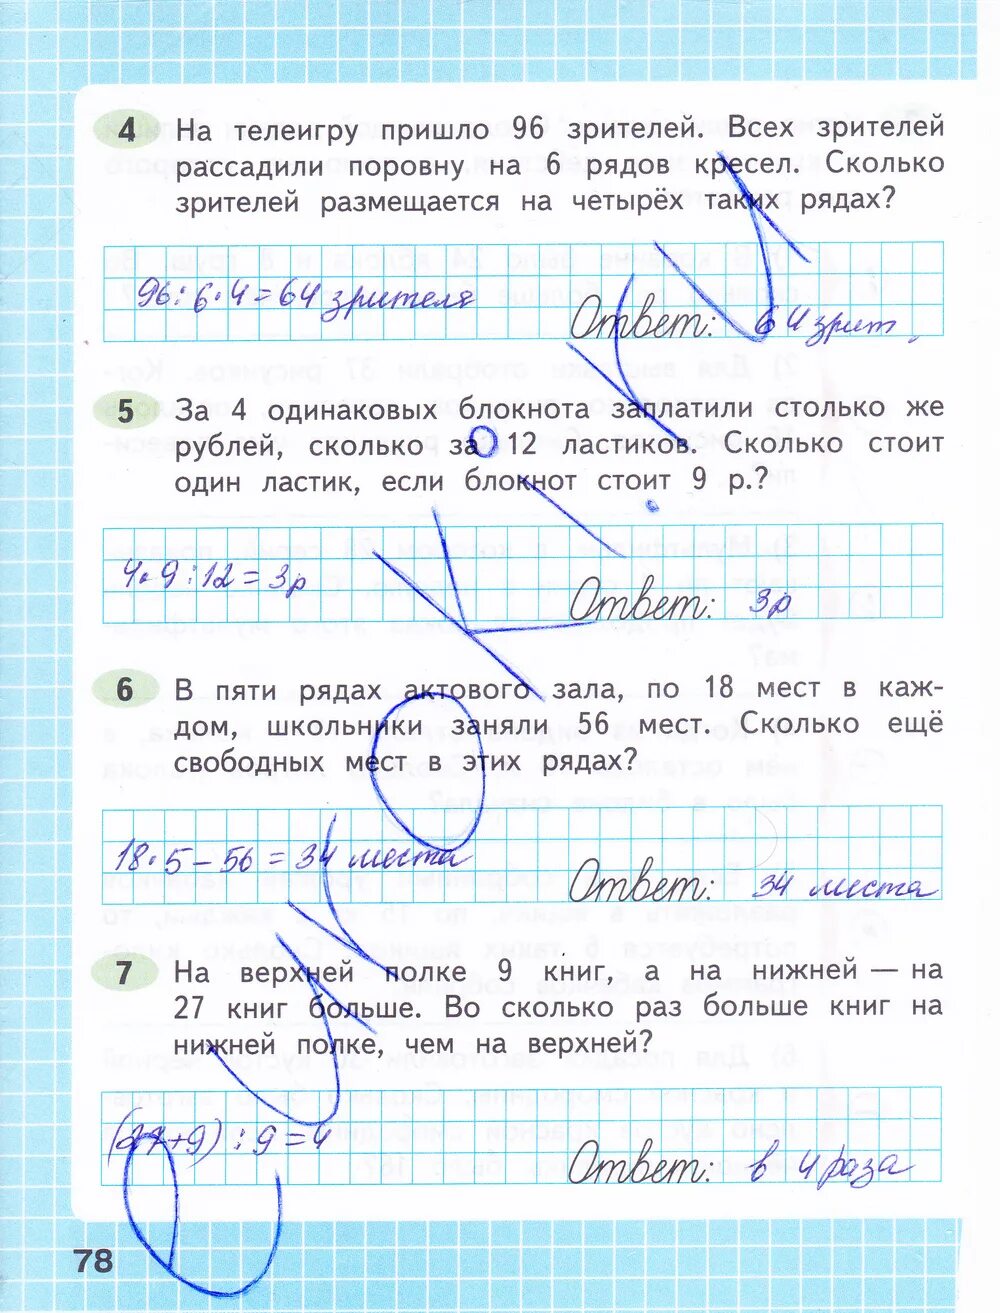 4 На телеигру пришло 96 зрителей. Всех зрителей
рассадили поровну на 6 рядов кресел. Сколько
зрителей размещается на четырёх таких рядах?
96 : 6 · 4 = 64 зрителя
Ответ: 64 зрит
5 За 4 одинаковых блокнота заплатили столько же
рублей, сколько за 12 ластиков. Сколько стоит
один ластик, если блокнот стоит 9 р.?
4 · 9 : 12 = 3р
Ответ: 3р
6 В пяти рядах актового зала, по 18 мест в каж-
дом, школьники заняли 56 мест. Сколько ещё
свободных мест в этих рядах?
18 · 5 – 56 = 34 места
Ответ: 34 места
7 На верхней полке 9 книг, а на нижней — на
27 книг больше. Во сколько раз больше книг на
нижней полке, чем на верхней?
(27+9) : 9 = 4
Ответ: в 4 раза
78